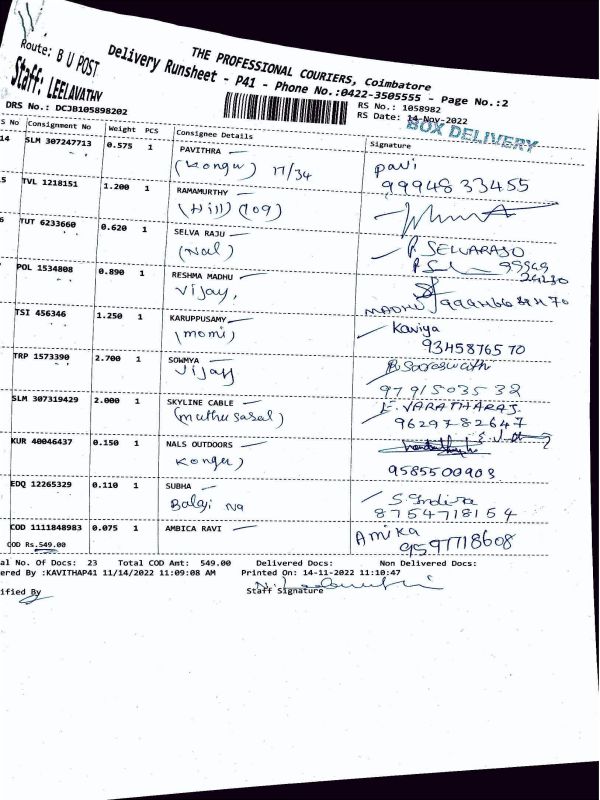 THE PROFESSIONAL COURIERS, Coimbatore
Route: B U POST
Delivery Runsheet - P41 - Phone No.:0422-3505555 - Page No.:2
Staff: LEELAVATHY
RS No.: 1058982
DRS No.: DCJB105898202
RS Date: 14-Nov-2022
BOX DELIVERY
S No Consignment No Weight PCS Consignee Details Signature
14 SLM 307247713 0.575 1 PAVITHRA pavi
(Kongu) 17/34 99948 33455
5 TVL 1218151 1.200 1 RAMAMURTHY
(Hill) (109)
6 TUT 6233660 0.620 1 SELVA RAJU P. SELVARAJU
(Nal) 99949
POL 1534808 0.890 1 RESHMA MADHU
Vijay, MADHU
TSI 456346 1.250 1 KARUPPUSAMY Kaviya
(momi) 93458765 70
TRP 1573390 2.700 1 SOWMYA B. Saraswathi
Vijay 97915035 32
SLM 307319429 2.000 1 SKYLINE CABLE E. VARATHARAJ.
(muthu sasal) 9629782647
KUR 40046437 0.150 1 NALS OUTDOORS
Kongu) 9585500903
EDQ 12265329 0.110 1 SUBHA S. Indira
Balaji Na 8754718154
COD 1111848983 0.075 1 AMBICA RAVI Amika
COD Rs.549.00 9597718608
al No. Of Docs: 23 Total COD Amt: 549.00 Delivered Docs: Non Delivered Docs:
ered By :KAVITHAP41 11/14/2022 11:09:08 AM Printed On: 14-11-2022 11:10:47
ified By Staff Signature